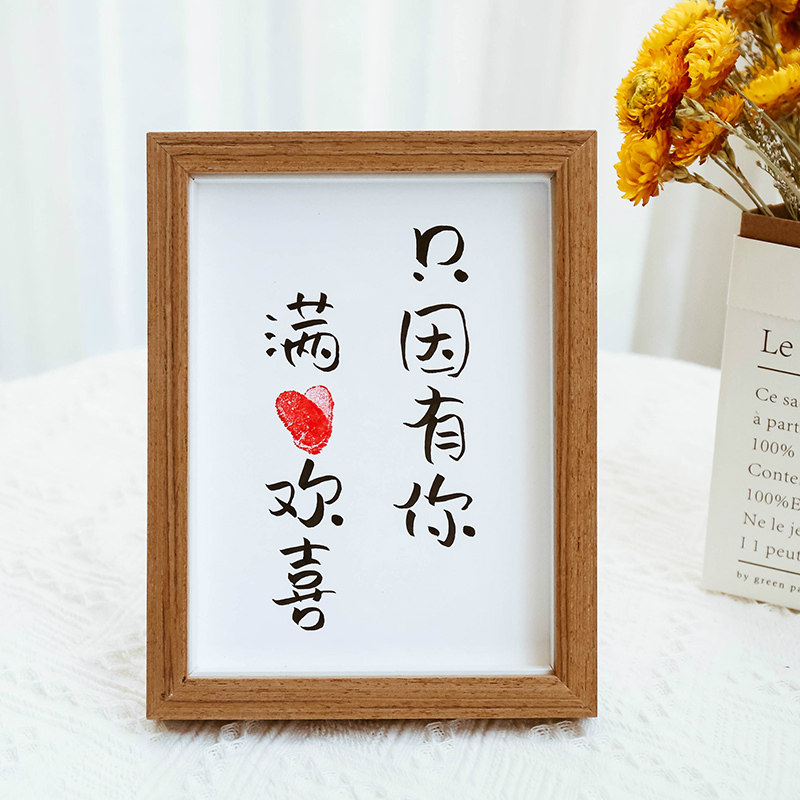 只因有你
满欢喜
Le
Ce sa
à part
100%
Conte
100%E
Ne le je
I l peut
by green pa